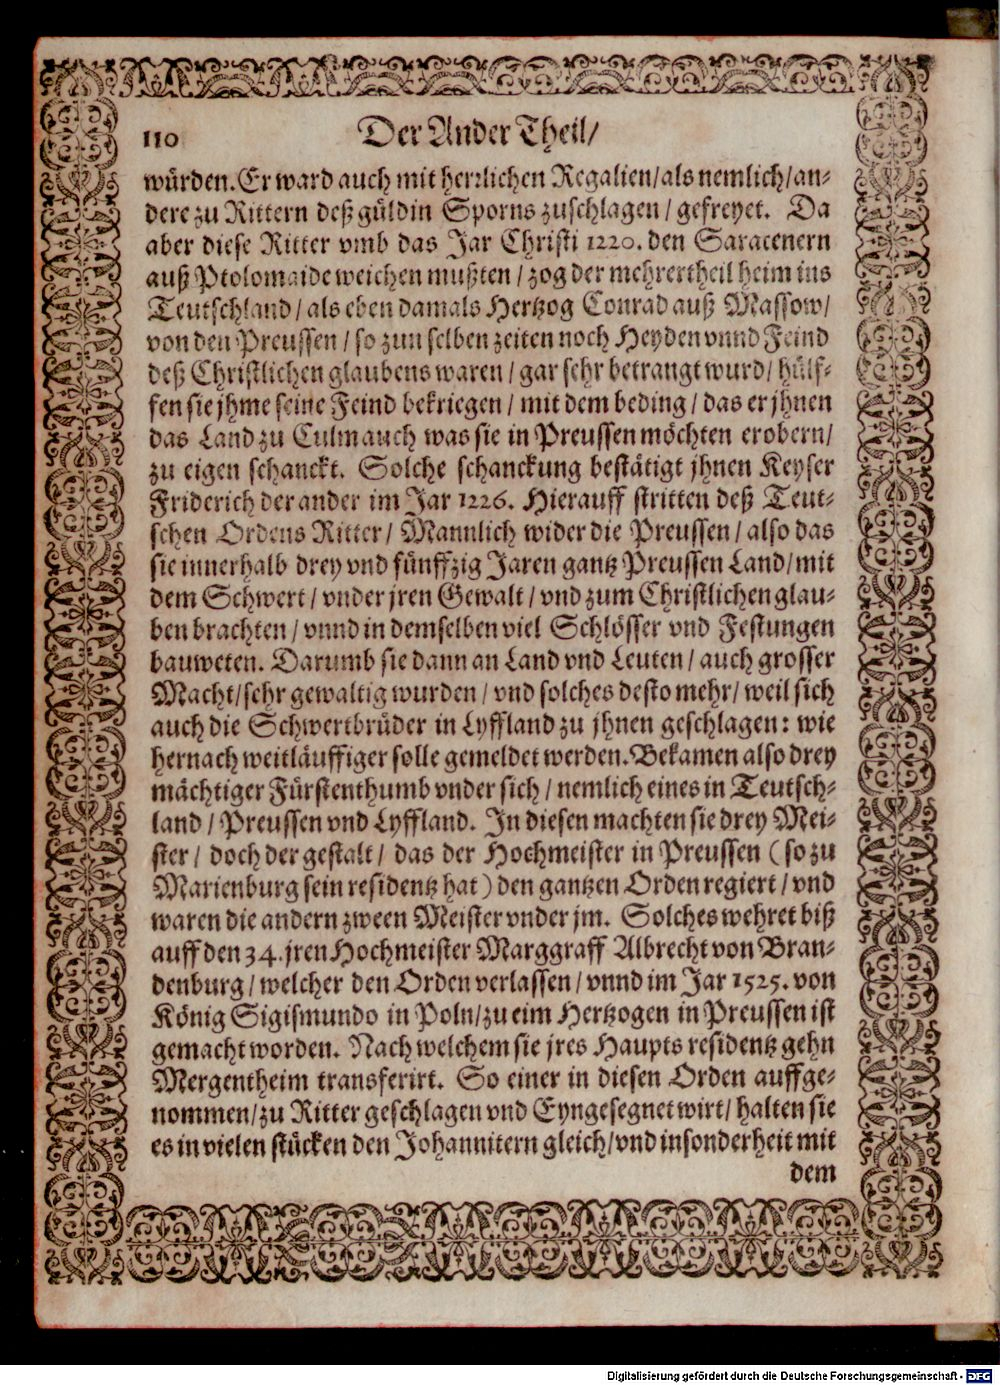 110 Der Ander Theil/
würden. Er ward auch mit herrlichen Regalien/ als nemlich/ an-
dere zu Rittern deß güldin Sporns zuschlagen/ gefreyet. Da
aber diese Ritter vmb das Jar Christi 1220. den Saracenern
auß Ptolomaide weichen mußten/ zog der mehrertheil heim ins
Teutschland/ als eben damals Hertzog Conrad auß Massow/
von den Preussen/ so zun selben zeiten noch Heyden vnnd Feind
deß Christlichen glaubens waren/ gar sehr betrangt wurd/ hülf-
fen sie jhme seine Feind bekriegen/ mit dem beding/ das er jhnen
das Land zu Culm auch was sie in Preussen möchten erobern/
zu eigen schanckt. Solche schanckung bestätigt jhnen Keyser
Friderich der ander im Jar 1226. Hierauff stritten deß Teut-
schen Ordens Ritter/ Mannlich wider die Preussen/ also das
sie innerhalb drey vnd fünffzig Jaren gantz Preussen Land/ mit
dem Schwert/ vnder jren Gewalt/ vnd zum Christlichen glau-
ben brachten/ vnnd in demselben viel Schlösser vnd Festungen
bauweten. Darumb sie dann an Land vnd Leuten/ auch grosser
Macht/ sehr gewaltig wurden/ vnd solches desto mehr/ weil sich
auch die Schwertbrüder in Lyffland zu jhnen geschlagen: wie
hernach weitläuffiger solle gemeldet werden. Bekamen also drey
mächtiger Fürstenthumb vnder sich/ nemlich eines in Teutsch-
land/ Preussen vnd Lyffland. In diesen machten sie drey Mei-
ster/ doch der gestalt/ das der Hochmeister in Preussen (so zu
Marienburg sein residentz hat) den gantzen Orden regiert/ vnd
waren die andern zween Meister vnder jm. Solches wehret biß
auff den 34. jren Hochmeister Marggraff Albrecht von Bran-
denburg/ welcher den Orden verlassen/ vnnd im Jar 1525. von
König Sigismundo in Poln/ zu eim Hertzogen in Preussen ist
gemacht worden. Nach welchem sie jres Haupts residentz gehn
Mergentheim transferirt. So einer in diesen Orden auffge-
nommen/ zu Ritter geschlagen vnd Eyngesegnet wirt/ halten sie
es in vielen stücken den Johannitern gleich/ vnd insonderheit mit
dem
Digitalisierung gefördert durch die Deutsche Forschungsgemeinschaft - DFG